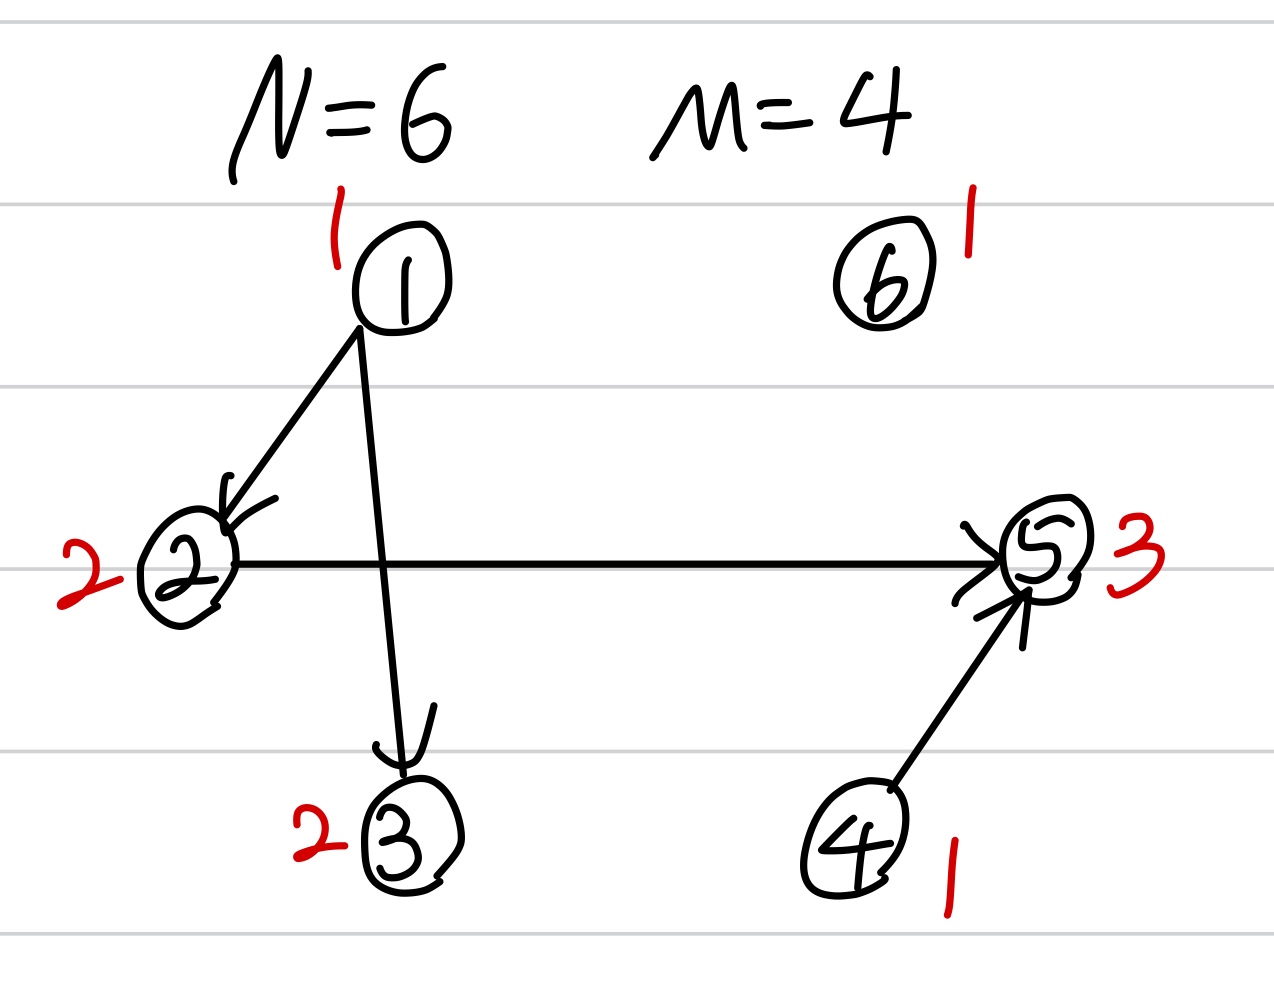 N=6 M=4
1 1 6 1
2 2 5 3
2 3 4 1